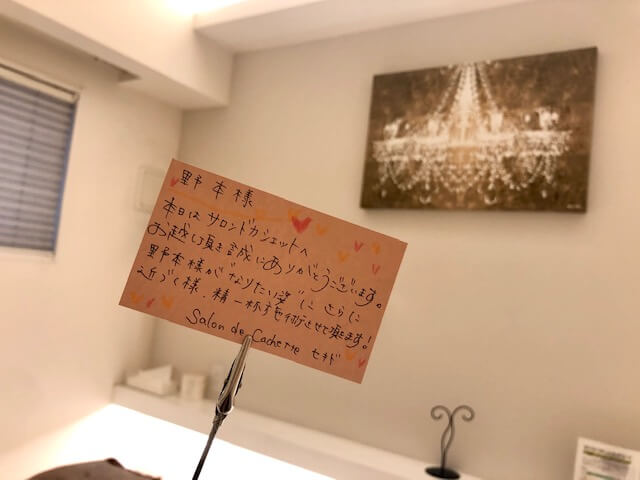 野本様
本日はサロンドカシェットへ
お越し頂き誠にありがとうございます。
野本様が“なりたい姿”にさらに
近づく様、精一杯
させて頂きます!
Salon de Cachette セキド